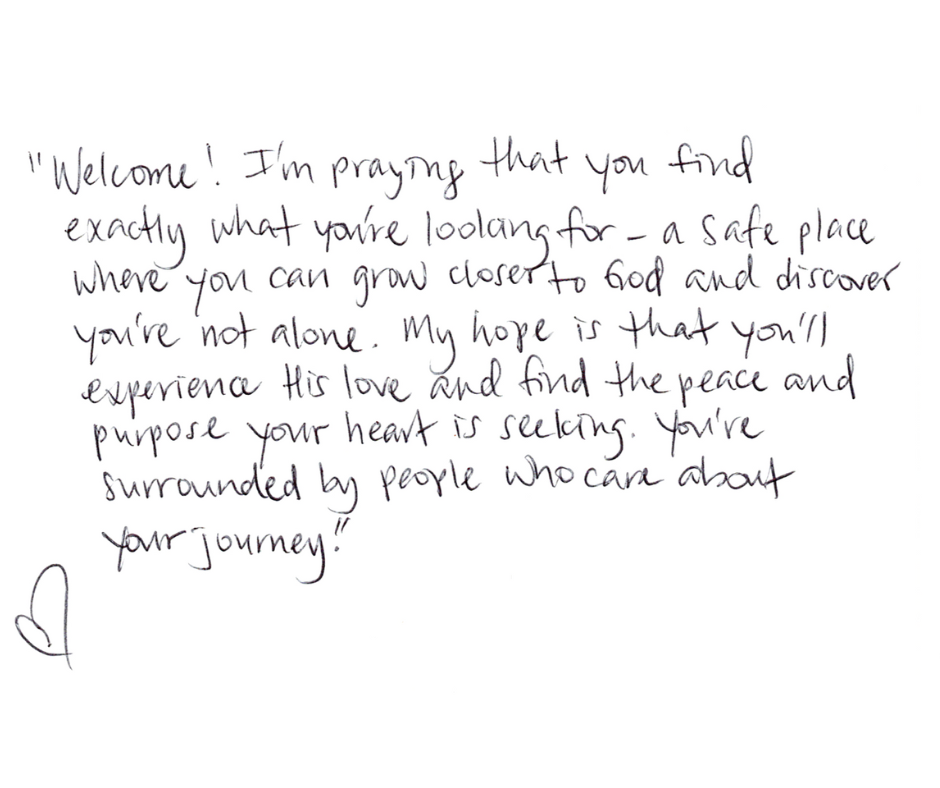 "Welcome! I'm praying that you find
exactly what you're looking for - a safe place
where you can grow closer to God and discover
you're not alone. My hope is that you'll
experience His love and find the peace and
purpose your heart is seeking. You're
surrounded by people who care about
your journey."